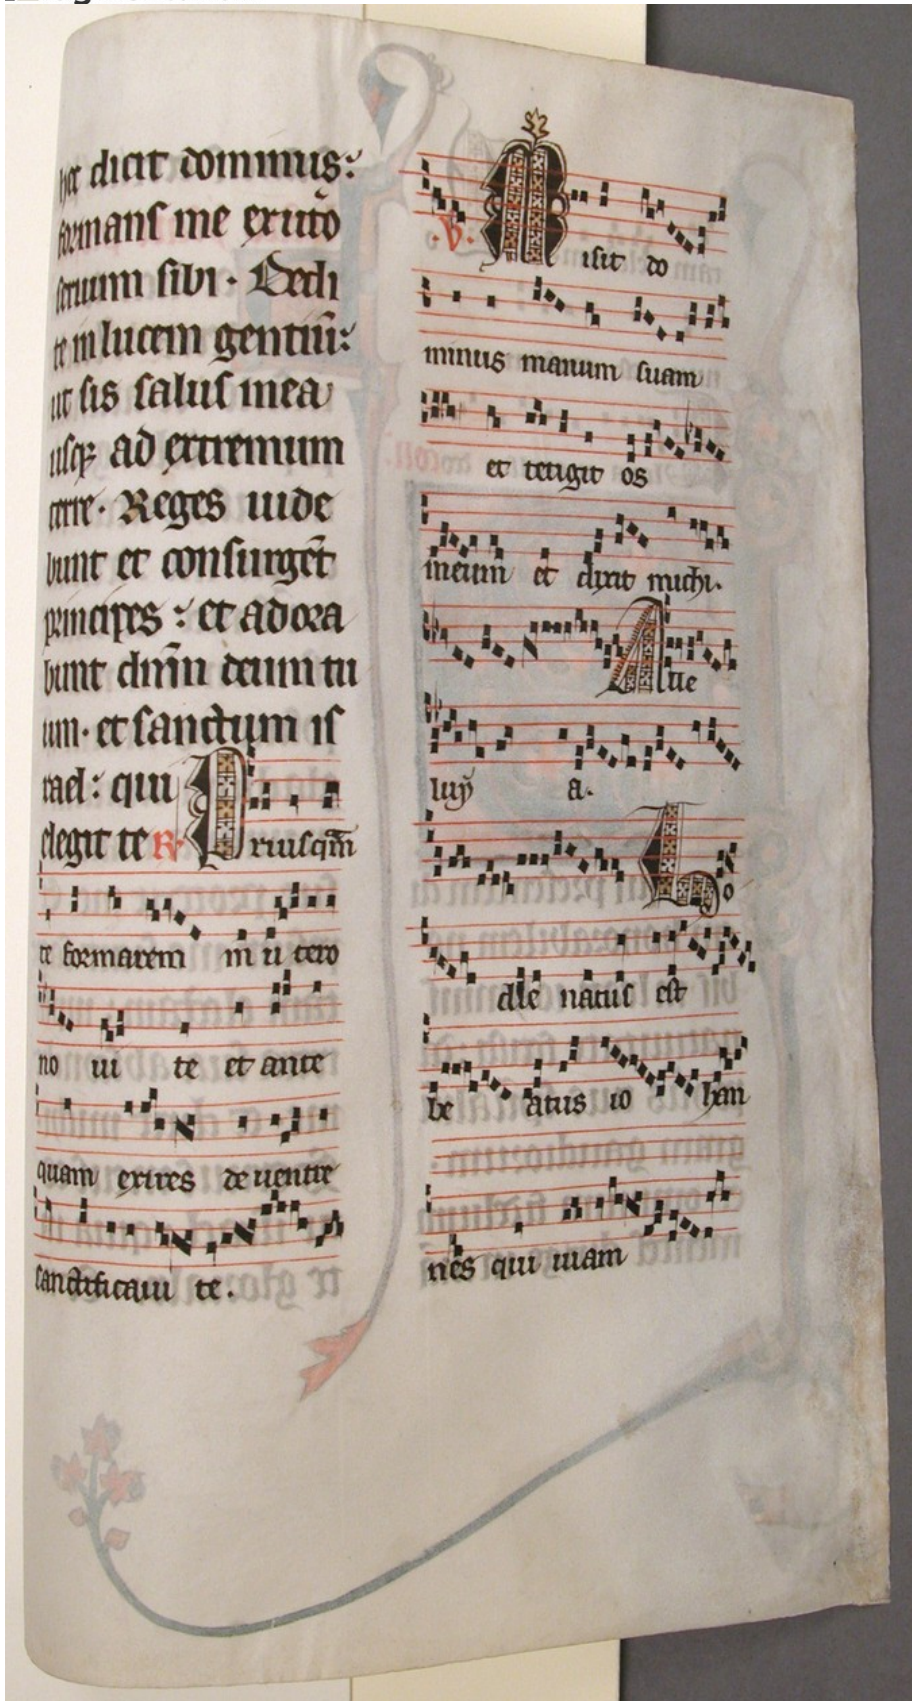 hec dicit dominus:
formans me exutº
seruum sibi · Dedi
te in lucem gentiū:
ut sis salus mea
usq; ad extremum
terre · Reges uide
bunt et consurgēt
principes : et adora
bunt dn̄m deum tu
um · et sanctum is
rael : qui
elegit te R̷ Priusqᷓm
te formarem in utero
no ui te et ante
quam exires de uentre
sanctificaui te .
.V̷. Misit do
minus manum suam
et tetigit os
meum et dixit michi ·
Alle
luya ·
Ho
die natus est
be atus io han
nes qui uiam